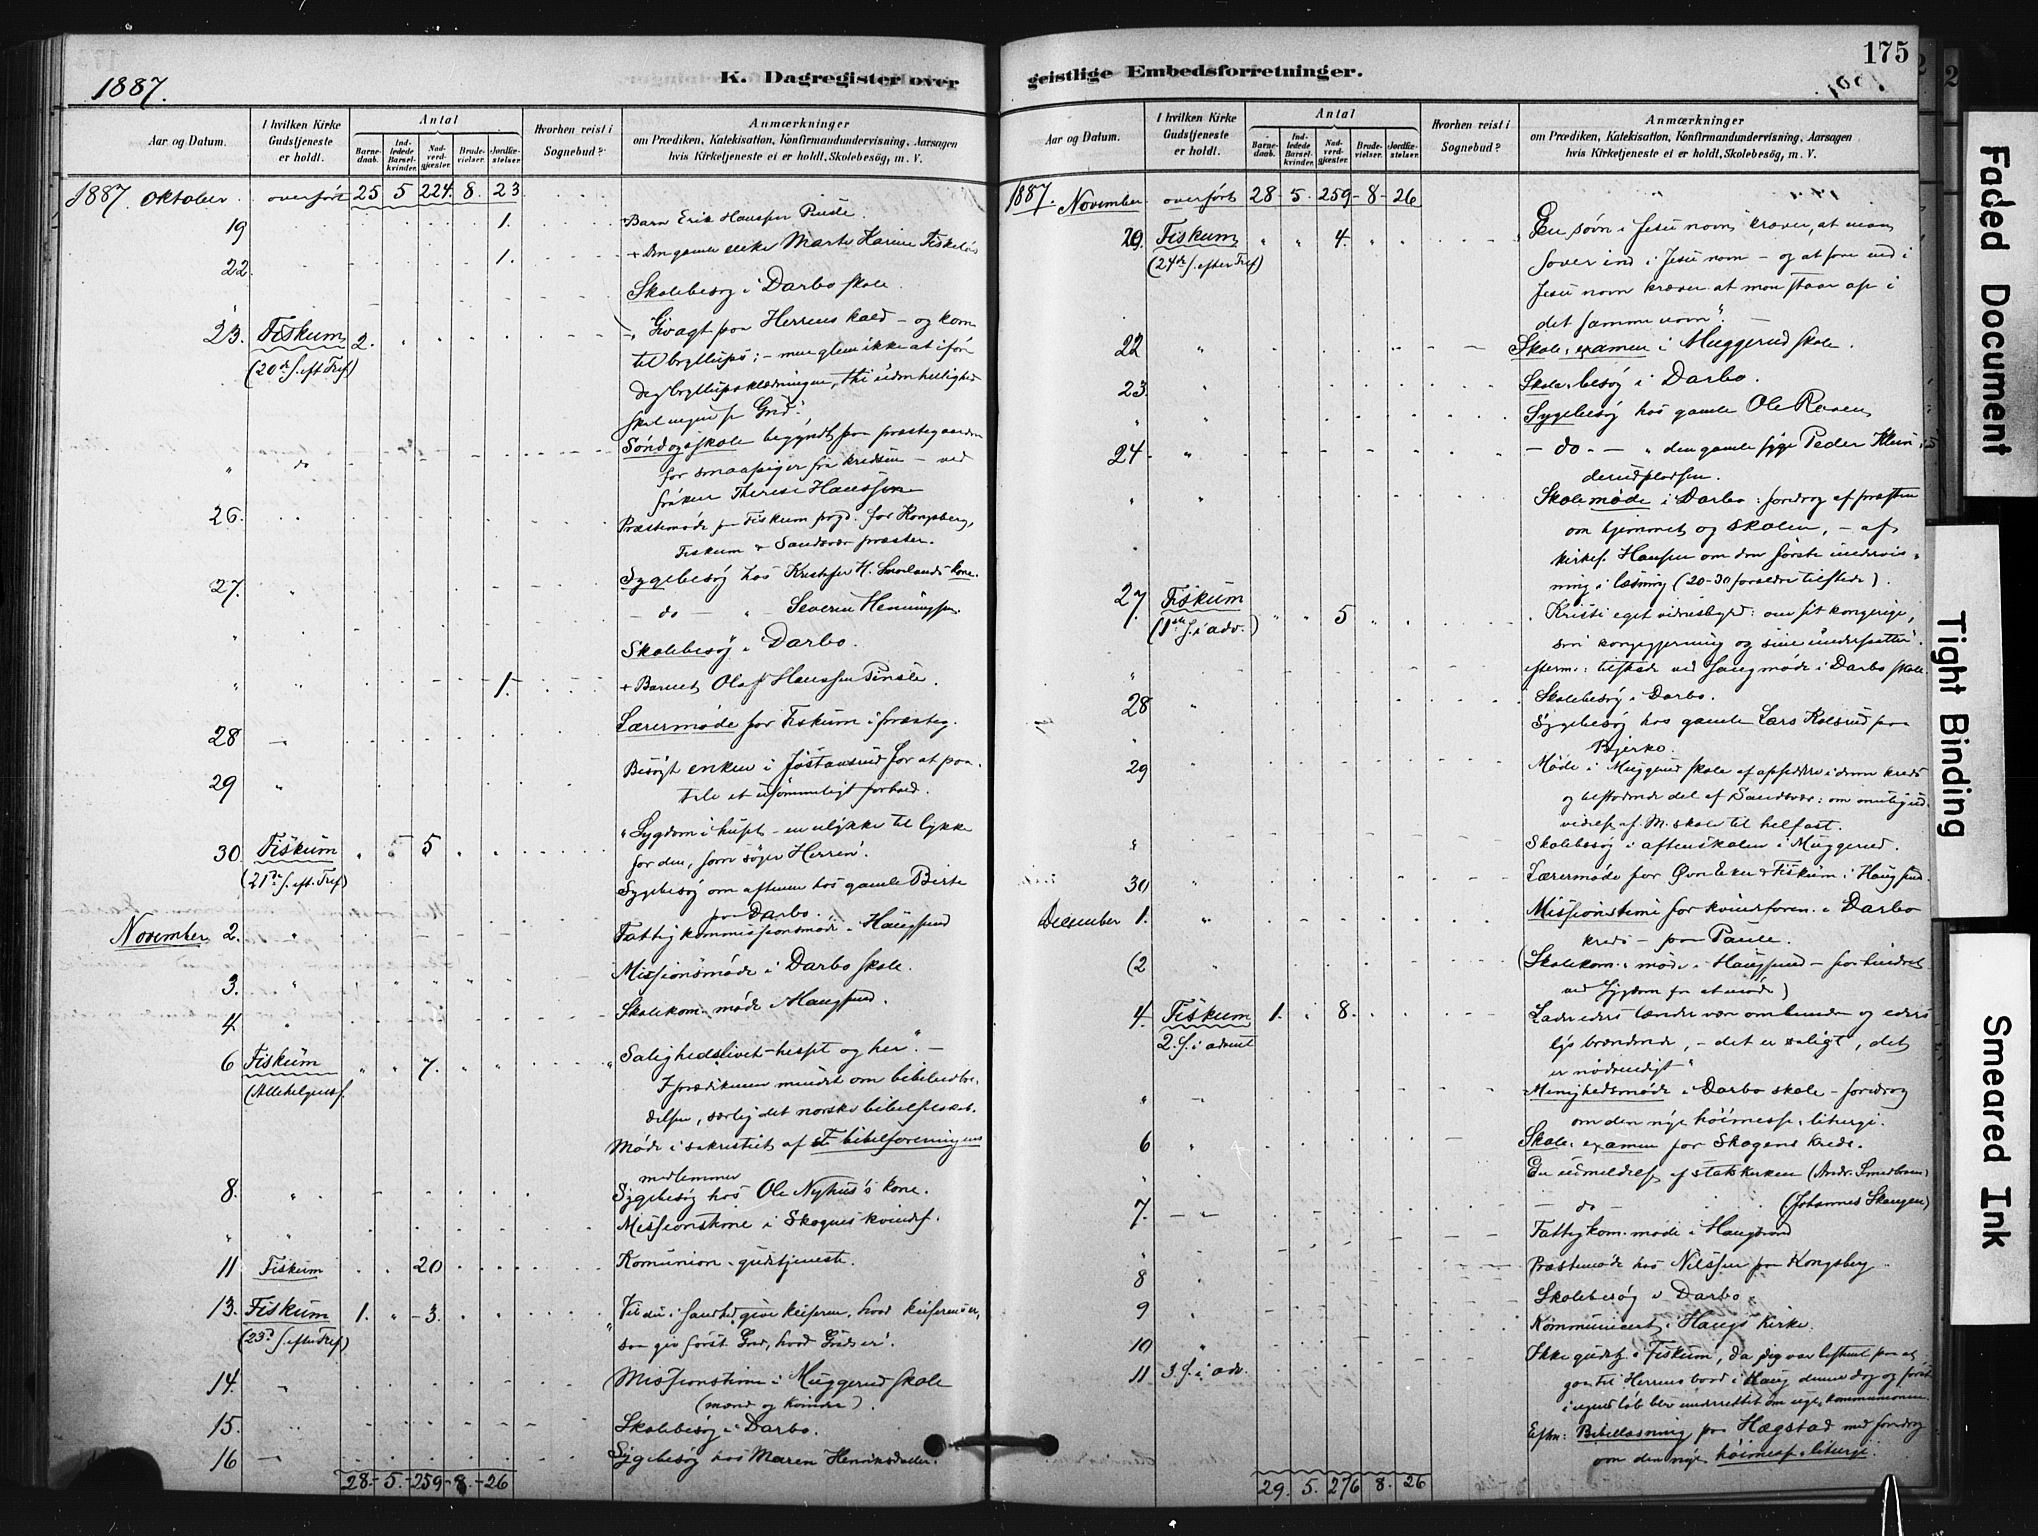 1887.
K. Dagregister over
Aar og Datum.
I hvilken Kirke Gudstjeneste er holdt.
Antal
Barnedaab.
Indledede Barselkvinder.
Nadverdgjæster.
Brudevielser.
Jordfæstelser.
Hvorhen reist i Sognebud?
Anmærkninger
om Prædiken, Katekisation, Konfirmandundervisning, Aarsagen
hvis Kirketjeneste ei er holdt, Skolebesøg, m. V.
1887 Oktober overført 25 5 224. 8. 23
19 1. + Barn Erik Hanssen
22 1. + Den gamle enke Marte Karine
Skolebesøg i Darbo skole.
23. Fiskum 2. "Givagt paa Herrens kald - og kom
(20de S. eft. Tref) til bryllups; - men glem ikke at iføre
dig bryllupsklædningen, thi uden hellighed
skal ingen se Gud".
" do Søndagsskole begyndt paa præstegaarden
for smaapiger fra kredsen - ved
frøken Therese Hanssen
26. Præstemøde paa Fiskum prgd. for Kongsberg,
Fiskum & Sandsvær præster.
27. Sygebesøg hos Kristofer H. kone.
- do - " - Severin Henningsen.
" Skolebesøg i Darbo.
" 1. + Barnet Olaf Hanssen
28 Lærermøde for Fiskum i præsteg.
29 Besøgt enken i Jøstansrud for at paa-
tale et usømmeligt forhold.
30 Fiskum " 5 5 "Sygdom i huset - en ulykke til lykke
(21de S. eft. Tref) for den, som søger Herren".
Sygebesøg om aftenen hos gamle Birte
paa Darbo.
November 2. Fattigkommissionsmøde i Haugsund
3. Missionsmøde i Darbo skole.
4. Skolekom. møde i Haugsund.
6 Fiskum " " 7. "Salighedslivet - hisset og her". -
(Allehelgensf. I prædikenen mindet om bibeludbre-
delsen, særlig det norske bibelselskab.
Møde i sakristiet af F bibelforeningens
medlemmer
8. Sygebesøg hos Ole Nyhus's kone.
" Missionstime i Skogens kvindef.
11 Fiskum 20 Komunion-gudstjeneste.
13. Fiskum 1. " 3. "Vil du i sandhed give keiseren, hvad keiserens er,
(23de S. efter Tref) saa giv først Gud, hvad Guds er".
14. Missionstime i Muggerud skole
(mænd og kvinder).
15. Skolebesøg i Darbo.
16 Sygebesøg hos Maren Henriksdatter.
28.- 5.- 259- 8.- 26
175
geistlige Embedsforretninger.
Aar og Datum.
I hvilken Kirke Gudstjeneste er holdt.
Antal
Barnedaab.
Indledede Barselkvinder.
Nadverdgjæster.
Brudevielser.
Jordfæstelser.
Hvorhen reist i Sognebud?
Anmærkninger
om Prædiken, Katekisation, Konfirmandundervisning, Aarsagen
hvis Kirketjeneste ei er holdt, Skolebesøg, m. V.
1887. November overført 28- 5. 259- 8- 26
20. Fiskum " " 4. " " "En søvn i Jesu navn kræver, at man
(24de S. efter Tref) sover ind i Jesu navn - og at fare ned i
Jesu navn kræver at man staar op i
det samme navn".
22 Skole-examen i Muggerud skole.
23 Skole-besøg i Darbo.
" Sygebesøg hos gamle Ole Raaen
24 - do - - " den gamle syge Peder
derudpladsen.
" Skolemøde i Darbo: foredrag af præsten
om hjemmet og skolen, - af
kirkes. Hansen om den første undervis-
ning i læsning (20-30 forældre tilstede).
27 Fiskum " " 5 " Kristi eget vidnesbyrd: om sit kongerige,
(1ste S. i adv.) sin kongegjerning og sine undersaatter".
" efterm.: tilstede ved sangmøde i Darbo skole
28 Skolebesøg i Darbo.
" Sygebesøg hos gamle Lars Kolsrud paa
Bjerko.
29 Møde i Muggerud skole af opsiddere i denne kreds
og tilstødende del af Sandsvær: om mulig ud-
videlse af M. skole til helfast.
" Skolebesøg i aftenskolen i Muggerud.
30 Lærermøde for Øvre Eker & Fiskum i Haugsund.
December 1. Missionstime for kvindeforen. i Darbo
kreds - paa Paule.
(2 (Skolekom.-møde i Haugsund - forhindret
ved sygdom fra at møde)
4. Fiskum 1. " 8. Lad eders lænder være ombundne og eders
2. S. i advent lys brændende, - det er saligt, det
er nødvendigt"
" Menighedsmøde i Darbo skole - foredrag
om den nye høimesse-liturgi.
6 Skole-examen for Skogens kreds.
" En udmeldelse af statskirken (Andr.
7. - do - (Johannes Skaugen)
" Fattigkom. møde i Haugsund
8 Præstemøde hos Nilssen paa Kongsberg
9 Skolebesøg i Darbo
10 Kommuniceret i Haugs kirke.
11 3. S. i adv. Ikke gudstj. i Fiskum, da jeg var bestemt paa at
gaa til Herrens bord i Haug denne dag og først
i ugens løb blev underrettet om uge-kommunionen.
Eftm: Bibellæsning paa Hægstad med foredrag
om den nye høimesse-liturgi.
29. 5. 276 8. 26
Faded Document
Tight Binding
Smeared Ink